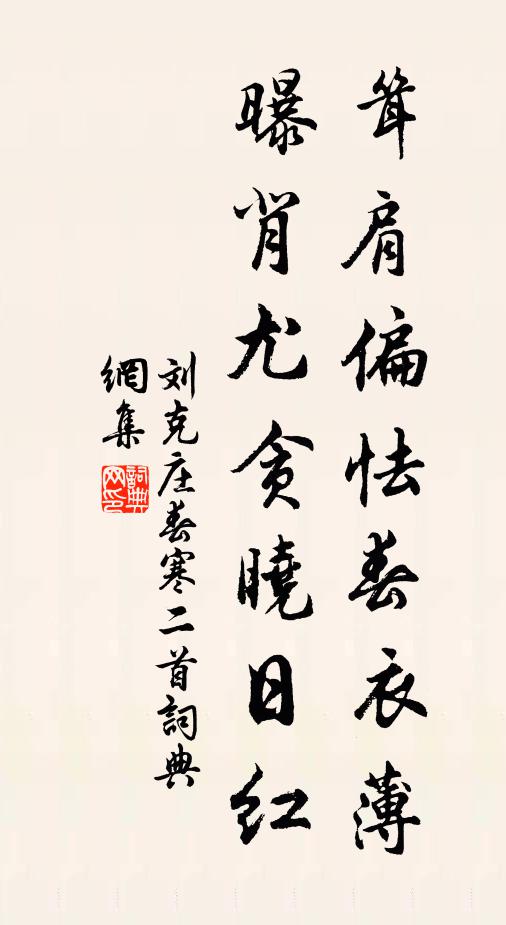 耸肩偏怯春衣薄
曝背尤贪曉日红
刘克庄春寒二首詞典
網集
詞典网印